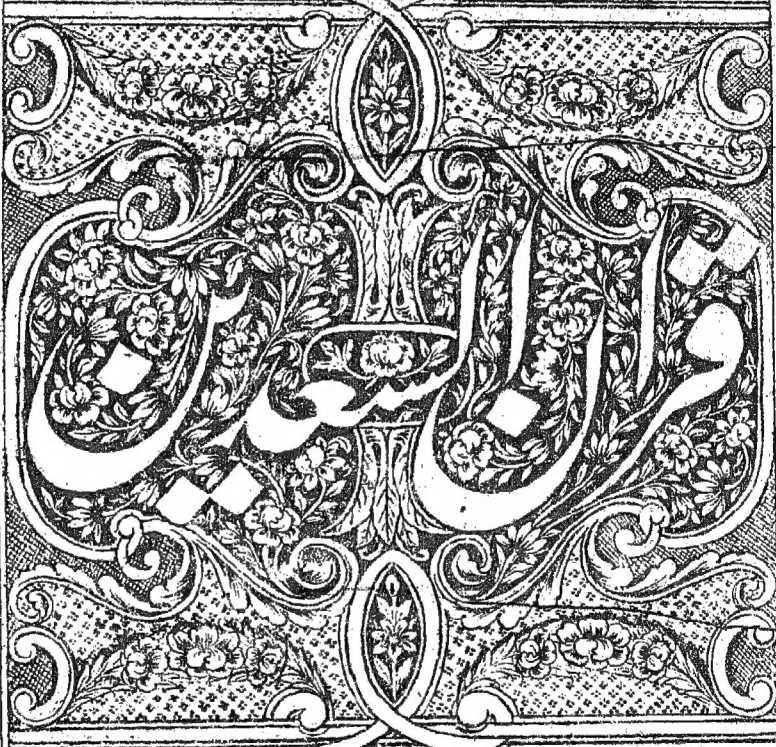 قران السعدین